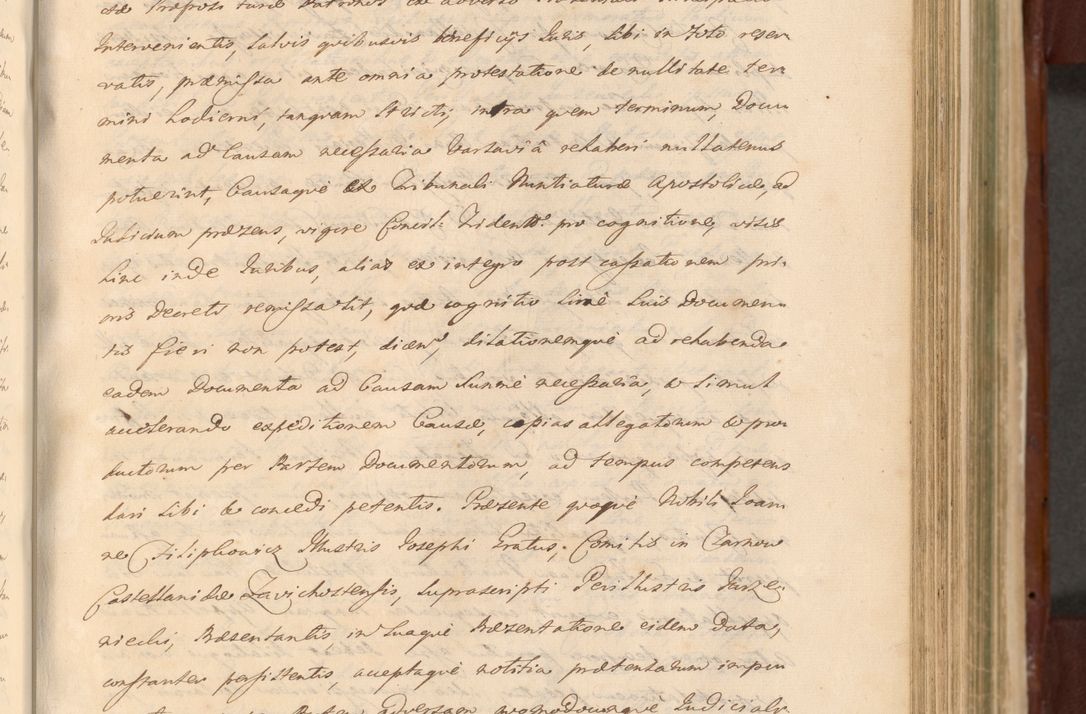 Intervenientis, salvis quibusvis beneficijs Juris, sibi in toto reser
vatis, præmissa ante omnia protestatione de nullitate ter
mini hodierni, tanquam stricti, intra quem terminum, Docu
menta ad Causam necessaria Varsaviâ rehaberi nullatenus
potuerint, Causaquè ex Tribunali Nuntiaturæ Apostolicæ, ad
Judicium præsens, vigore Concil: Trident: pro cognitione, visis
hinc inde Juribus, alias ex integro post cassationem pri
oris Decreti remissa sit, quæ cognitio sinè suis Documen
tis fieri non potest, dicen, dilationemquè ad rehabenda
eadem Documenta ad Causam summè necessaria, & simul
accelerando expeditionem Causæ, copias allegatorum & pro
ductorum per Partem Documentorum, ad tempus competens
dari sibi & concedi petentis. Præsente quoquè Nobili Joan
ne Filipkowicz Illustris Josephi Gratus, Comitis in Czarnow
Castellanidæ Zavichostensis, suprascripti Perillustris Jarze
niecki, Præsentantis, in suaquè Præsentatione eidem data,
constanter persistentis, acceptaquè notitia prætentarum impu